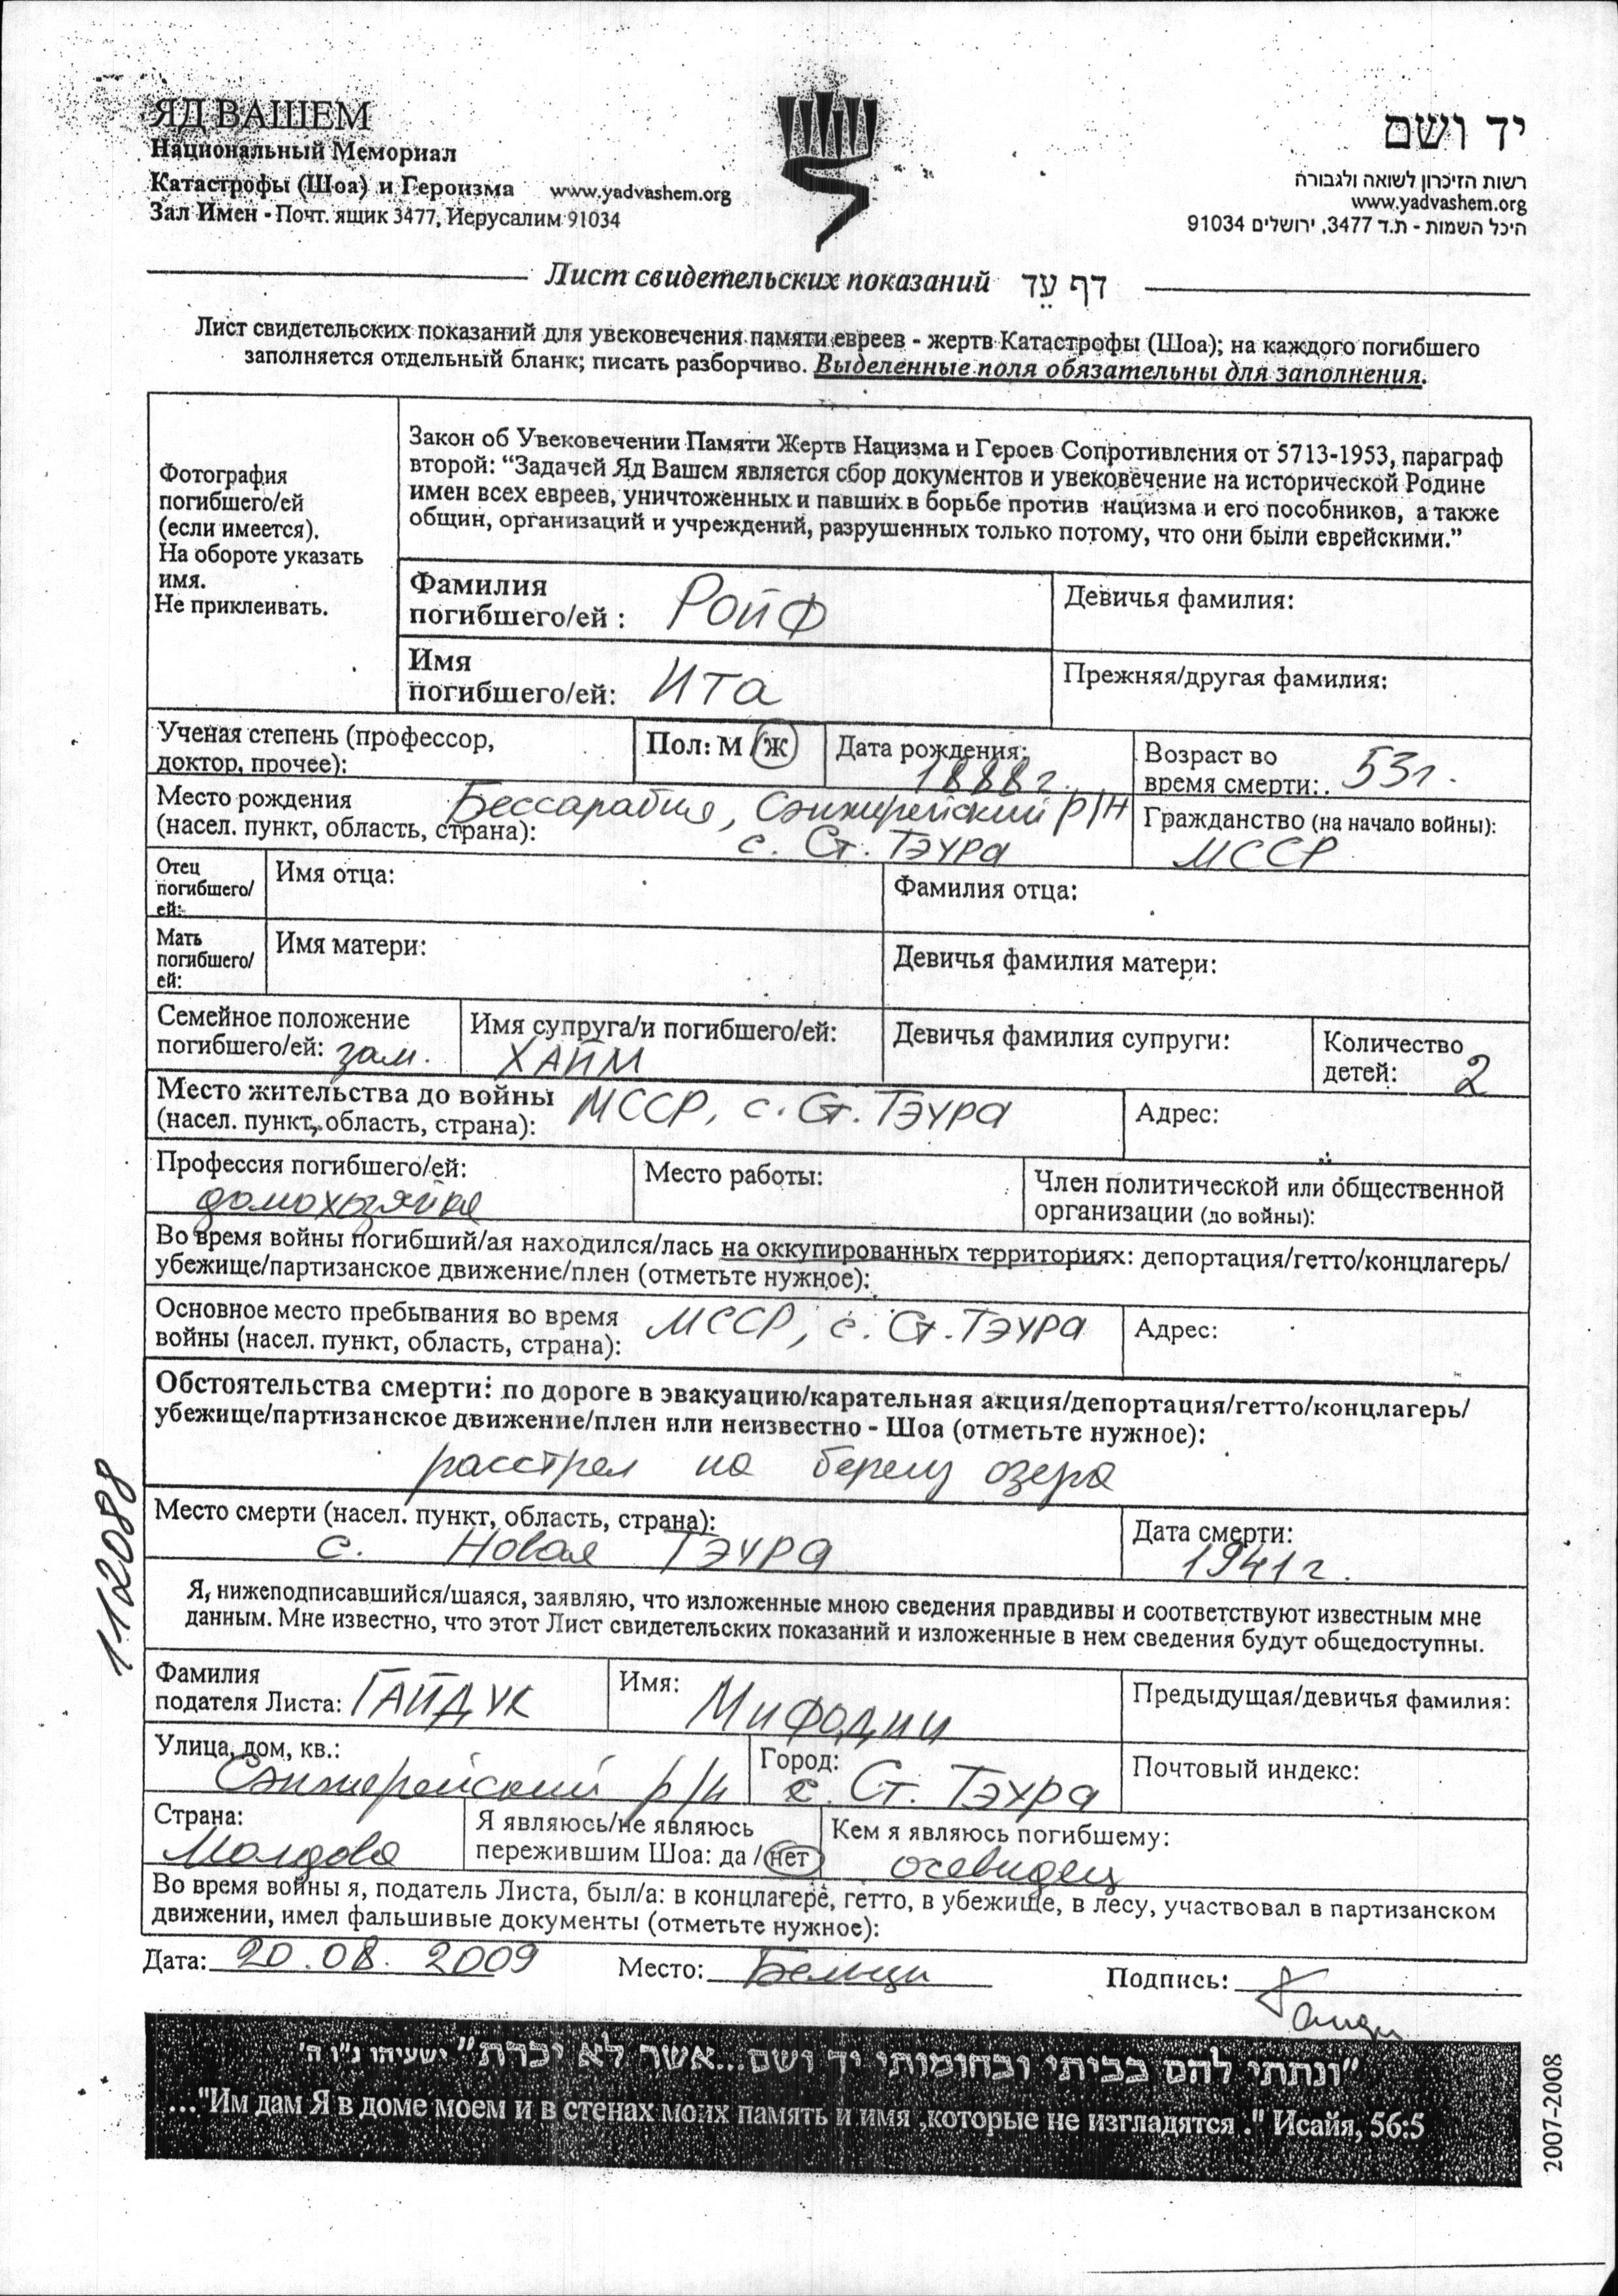 ЯД ВАШЕМ
Национальный Мемориал
Катастрофы (Шоа) и Героизма www.yadvashem.org
Зал Имен - Почт. ящик 3477, Иерусалим 91034
יד ושם
רשות הזיכרון לשואה ולגבורה
www.yadvashem.org
היכל השמות - ת.ד 3477, ירושלים 91034
Лист свидетельских показаний דף עֵד
Лист свидетельских показаний для увековечения памяти евреев - жертв Катастрофы (Шоа); на каждого погибшего
заполняется отдельный бланк; писать разборчиво. Выделенные поля обязательны для заполнения.
Фотография
погибшего/ей
(если имеется).
На обороте указать
имя.
Не приклеивать.
Закон об Увековечении Памяти Жертв Нацизма и Героев Сопротивления от 5713-1953, параграф
второй: “Задачей Яд Вашем является сбор документов и увековечение на исторической Родине
имен всех евреев, уничтоженных и павших в борьбе против нацизма и его пособников, а также
общин, организаций и учреждений, разрушенных только потому, что они были еврейскими.”
Фамилия
погибшего/ей : РОЙФ
Девичья фамилия:
Имя
погибшего/ей: Ита
Прежняя/другая фамилия:
Ученая степень (профессор,
доктор, прочее):
Пол: М / Ж
Дата рождения:
1888г.
Возраст во
время смерти: 53г.
Место рождения Бессарабия, Сэнжерейский р/н
(насел. пункт, область, страна): с. Ст. Тэура
Гражданство (на начало войны):
МССР
Отец
погибшего/
ей:
Имя отца:
Фамилия отца:
Мать
погибшего/
ей:
Имя матери:
Девичья фамилия матери:
Семейное положение
погибшего/ей: зам.
Имя супруга/и погибшего/ей:
ХАЙМ
Девичья фамилия супруги:
Количество
детей: 2
Место жительства до войны МССР, с. Ст. Тэура
(насел. пункт, область, страна):
Адрес:
Профессия погибшего/ей:
домохозяйка
Место работы:
Член политической или общественной
организации (до войны):
Во время войны погибший/ая находился/лась на оккупированных территориях: депортация/гетто/концлагерь/
убежище/партизанское движение/плен (отметьте нужное):
Основное место пребывания во время МССР, с. Ст. Тэура
войны (насел. пункт, область, страна):
Адрес:
Обстоятельства смерти: по дороге в эвакуацию/карательная акция/депортация/гетто/концлагерь/
убежище/партизанское движение/плен или неизвестно - Шоа (отметьте нужное):
расстрел на берегу озера
Место смерти (насел. пункт, область, страна):
с. Новая Тэура
Дата смерти:
1941г.
Я, нижеподписавшийся/шаяся, заявляю, что изложенные мною сведения правдивы и соответствуют известным мне
данным. Мне известно, что этот Лист свидетельских показаний и изложенные в нем сведения будут общедоступны.
Фамилия
подателя Листа: ГАЙДУК
Имя: Мифодии
Предыдущая/девичья фамилия:
Улица, дом, кв.:
Сэнжерейский р/н
Город:
с. Ст. Тэура
Почтовый индекс:
Страна:
Молдова
Я являюсь/не являюсь
пережившим Шоа: да / нет
Кем я являюсь погибшему:
очевидец
Во время войны я, податель Листа, был/а: в концлагере, гетто, в убежище, в лесу, участвовал в партизанском
движении, имел фальшивые документы (отметьте нужное):
Дата: 20.08.2009 Место: Бельцы Подпись:
"ונתתי להם בביתי ובחומותי יד ושם...אשר לא יכרת" ישעיהו נ"ו ה'
..."Им дам Я в доме моем и в стенах моих память и имя ,которые не изгладятся ." Исайя, 56:5
1122088
2007-2008